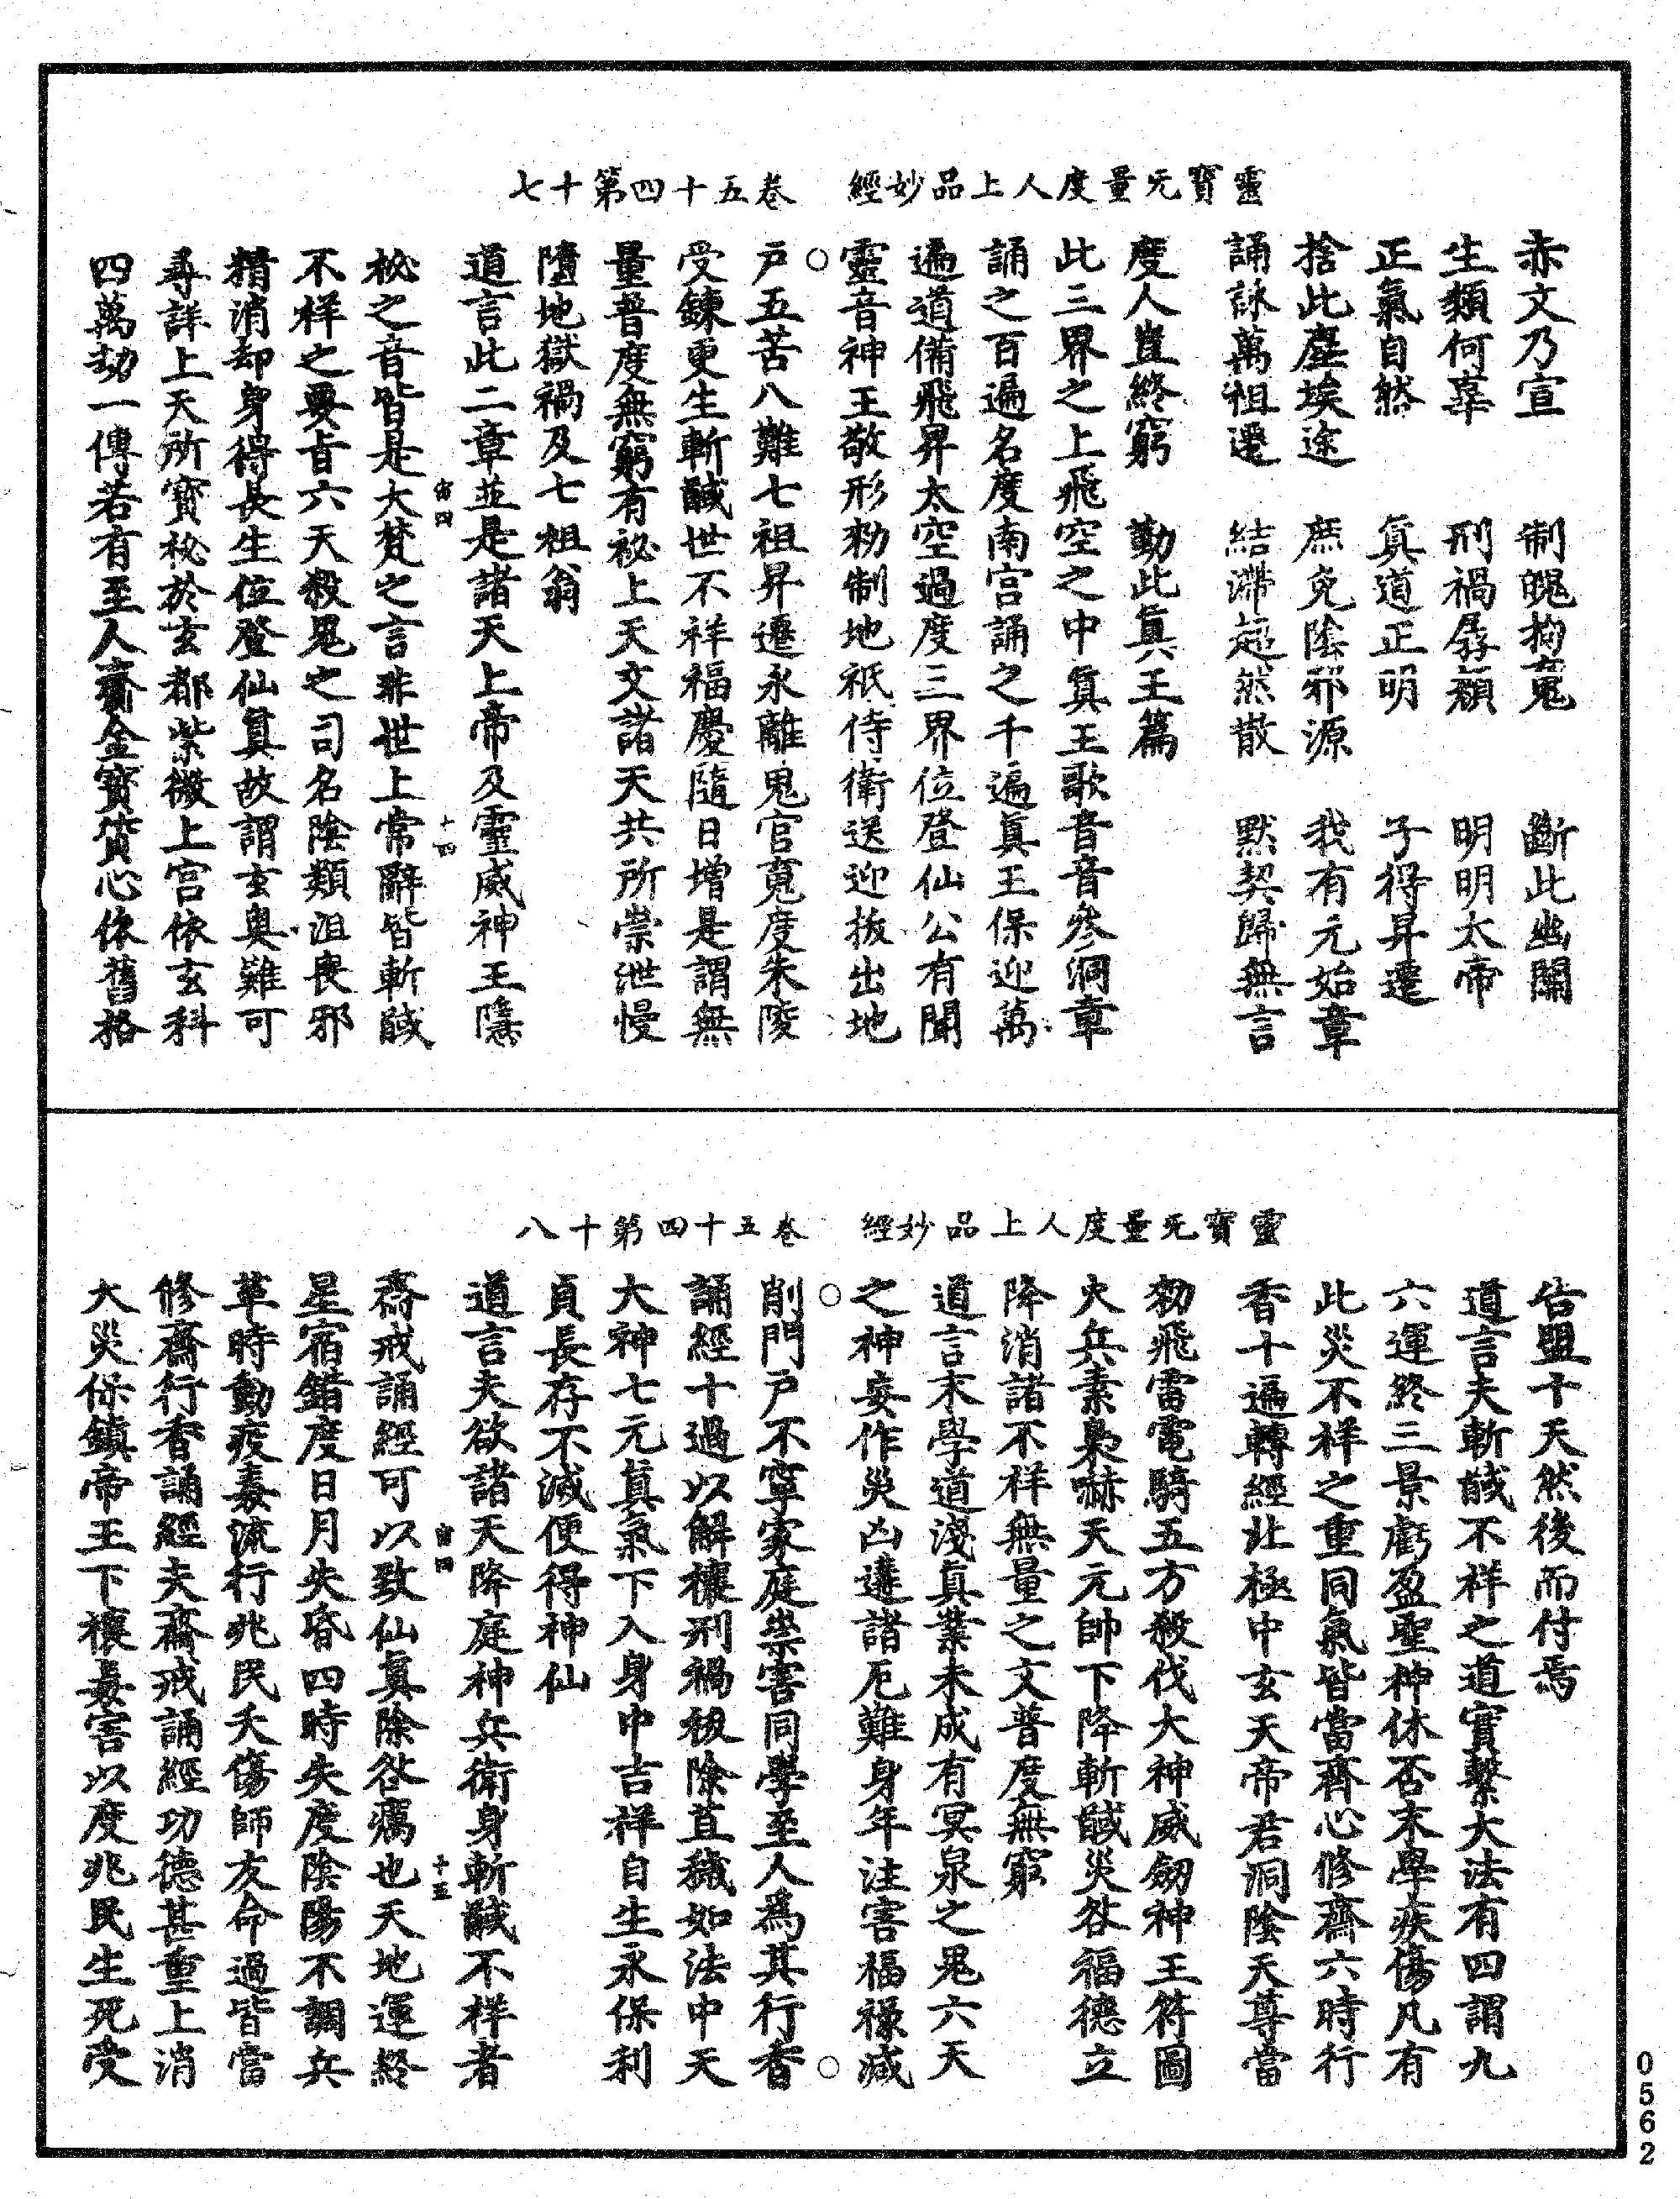 靈寶无量度人上品妙經 卷五十四第十七
赤文乃宣 制魄拘鬼 斷此幽關
生類何辜 刑禍孱顏 明明太帝
正氣自然 真道正明 子得昇遷
捨此塵埃途 庶免陰邪源 我有元始章
誦詠萬祖遷 結滯超然散 默契歸無言
度人豈終窮 勤此真王篇
此三界之上飛空之中真王歌音音參洞章
誦之百遍名度南宮誦之千遍真王保迎萬
遍道備飛昇太空過度三界位登仙公有聞
靈音神王敬形勑制地祇侍衛送迎拔出地
戶五苦八難七祖昇遷永離鬼官䰟度朱陵
受鍊更生斬馘世不祥福慶隨日增是謂無
量普度無窮有祕上天文諸天共所崇泄慢
墮地獄禍及七祖翁
道言此二章並是諸天上帝及靈威神王隱
宙四 十四
祕之音皆是大梵之言非世上常辭皆斬馘
不祥之要旨六天殺鬼之司名陰類沮喪邪
精消却身得長生位登仙真故謂玄奧難可
尋詳上天所寳祕於玄都紫微上宮依玄科
四萬劫一傳若有至人齎金寳質心依舊格
靈寶无量度人上品妙經 卷五十四第十八
告盟十天然後而付焉
道言夫斬馘不祥之道實繫大法有四謂九
六運終三景虧盈聖神休否末學疾傷凡有
此災不祥之重同氣皆當齋心修齋六時行
香十遍轉經北極中玄天帝君洞陰天尊當
勑飛雷電騎五方殺伐大神威劒神王符圖
火兵素梟嚇天元帥下降斬馘災咎福德立
降消諸不祥無量之文普度無窮
道言末學道淺真業未成有冥泉之鬼六天
之神妄作災凶遘諸厄難身年注害福祿減
削門戶不寧家庭祟害同學至人為其行香
誦經十過以解禳刑禍祓除苴穢如法中天
大神七元真氣下入身中吉祥自生永保利
貞長存不滅便得神仙
道言夫欲諸天降庭神兵衛身斬馘不祥者
宙四 十五
齋戒誦經可以致仙真除咎癘也天地運終
星宿錯度日月失昏四時失度陰陽不調兵
革時動疫毒流行兆民夭傷師友命過皆當
修齋行香誦經夫齋戒誦經功德甚重上消
大災保鎮帝王下禳毒害以度兆民生死受
0562